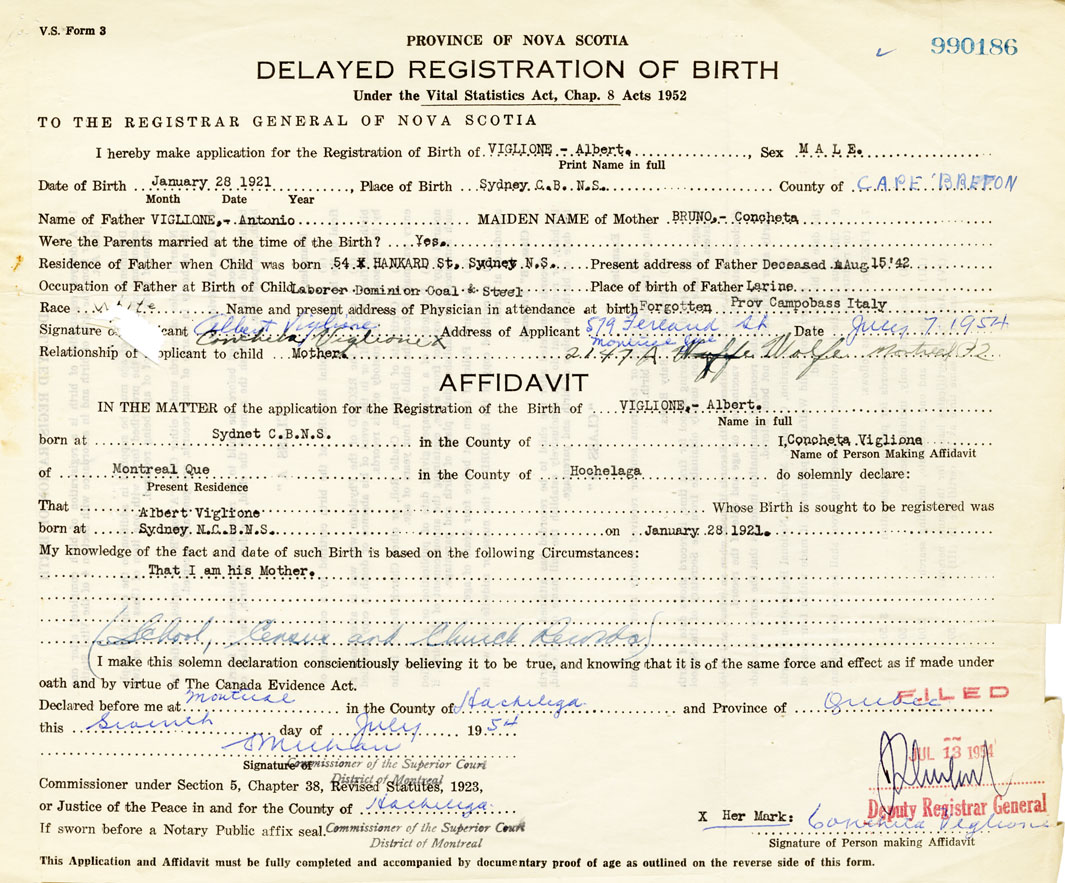 V.S. Form 3
PROVINCE OF NOVA SCOTIA
990186
DELAYED REGISTRATION OF BIRTH
Under the Vital Statistics Act, Chap. 8 Acts 1952
TO THE REGISTRAR GENERAL OF NOVA SCOTIA
I hereby make application for the Registration of Birth of VIGLIONE - Albert. , Sex MALE.
Print Name in full
Date of Birth January 28 1921 , Place of Birth Sydney C.B. N.S. County of CAPE BRETON
Month Date Year
Name of Father VIGLIONE,- Antonio MAIDEN NAME of Mother BRUNO,- Concheta
Were the Parents married at the time of the Birth? Yes.
Residence of Father when Child was born 54 X HANKARD St, Sydney N.S. Present address of Father Deceased Aug 15 '42
Occupation of Father at Birth of Child Laborer Dominion Coal & Steel Place of birth of Father Larine.
Race White Name and present address of Physician in attendance at birth Forgotten Prov Campobass Italy
Signature of icant Albert Viglione Address of Applicant 579 Ferland St Date July 7 1954
Concheta Viglione X Montreal Que
Relationship of pplicant to child Mother. 2147 A Wolfe Montreal
AFFIDAVIT
IN THE MATTER of the application for the Registration of the Birth of VIGLIONE,- Albert.
Name in full
born at Sydnet C.B.N.S. in the County of I, Concheta Viglione
Name of Person Making Affidavit
of Montreal Que in the County of Hochelaga do solemnly declare:
Present Residence
That Albert Viglione Whose Birth is sought to be registered was
born at Sydney N.C.B.N.S. on January 28 1921.
My knowledge of the fact and date of such Birth is based on the following Circumstances:
That I am his Mother.
(School, Census and Church Records)
I make this solemn declaration conscientiously believing it to be true, and knowing that it is of the same force and effect as if made under
oath and by virtue of The Canada Evidence Act.
Declared before me at Montreal in the County of Hochelaga and Province of Quebec
FILED
this Seventh day of July 1954
JUL 13 1954
Signature of Commissioner of the Superior Court
District of Montreal
Commissioner under Section 5, Chapter 38, Revised Statutes, 1923,
or Justice of the Peace in and for the County of Hochelaga
Deputy Registrar General
X Her Mark: Concheta Viglione
If sworn before a Notary Public affix seal. Commissioner of the Superior Court
District of Montreal
Signature of Person making Affidavit
This Application and Affidavit must be fully completed and accompanied by documentary proof of age as outlined on the reverse side of this form.